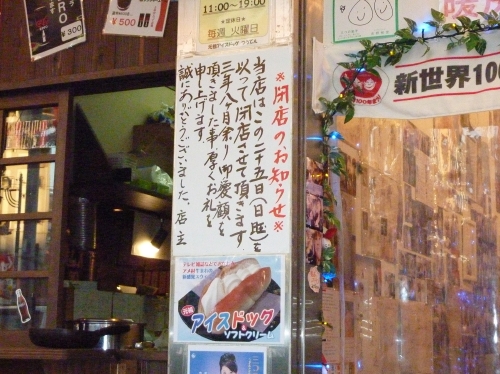 ¥300
¥500
11:00~19:00
毎週 火曜日
新世界100
※閉店のお知らせ※
当店はこの二十五日(日曜)を
以って閉店させて頂きます
三年八ヶ月余り御愛顧を
頂きました事厚くお礼を
申し上げます。
誠にありがとうございました。店主
元祖
アイスドッグ
&
ソフトクリーム